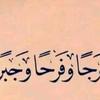 رَجًا وفَرَحًا وَجَبرً